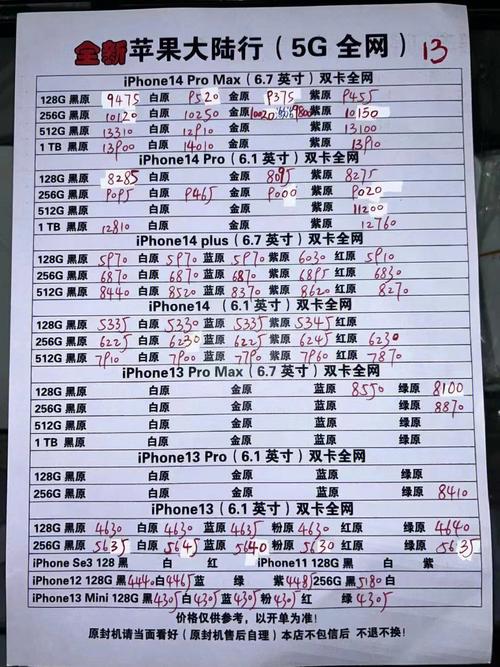 全新苹果大陆行（5G 全网）13
iPhone14 Pro Max（6.7 英寸）双卡全网
128G 黑原 9475 白原 9520 金原 9375 紫原 9455
256G 黑原 10120 白原 10250 金原 紫原 10150
512G 黑原 13310 白原 12910 金原 紫原 13100
1 TB 黑原 13900 白原 14010 金原 紫原 13910
iPhone14 Pro（6.1 英寸）双卡全网
128G 黑原 8285 白原 金原 8095 紫原 8275
256G 黑原 9095 白原 9465 金原 9000 紫原 9020
512G 黑原 白原 金原 紫原 11200
1 TB 黑原 12810 白原 金原 紫原 12760
iPhone14 plus（6.7 英寸）双卡全网
128G 黑原 5970 白原 5970 蓝原 5970 紫原 6030 红原 5910
256G 黑原 6870 白原 6870 蓝原 6870 紫原 6895 红原 6830
512G 黑原 8440 白原 8520 蓝原 8370 紫原 8620 红原 8270
iPhone14 （6.1 英寸）双卡全网
128G 黑原 5335 白原 5330 蓝原 5335 紫原 5345 红原
256G 黑原 6225 白原 6230 蓝原 6225 紫原 6245 红原 6230
512G 黑原 7910 白原 7900 蓝原 7790 紫原 7960 红原 7870
iPhone13 Pro Max（6.7 英寸）双卡全网
128G 黑原 白原 金原 蓝原 8550 绿原 8100
256G 黑原 白原 金原 蓝原 绿原 8870
512G 黑原 白原 金原 蓝原 绿原
1 TB 黑原 白原 金原 蓝原 绿原
iPhone13 Pro（6.1 英寸）双卡全网
128G 黑原 白原 金原 蓝原 绿原
256G 黑原 白原 金原 蓝原 绿原 8410
iPhone13（6.1 英寸）双卡全网
128G 黑原 4630 白原 4630 蓝原 4635 粉原 4630 红原 绿原 4640
256G 黑原 5635 白原 5645 蓝原 5640 粉原 5630 红原 绿原 5635
iPhone Se3 128 黑 白 红 iPhone11 128G 黑 白 紫
iPhone12 128G 黑 4440 白 4465 蓝 绿 紫 4485 256G 黑 5180 白
iPhone13 Mini 128G 黑 4305 白 4305 蓝 4305 粉 红 绿 4305
价格仅供参考，以开单为准！
原封机请当面看好（原封机售后自理）本店不包信后 不退不换！